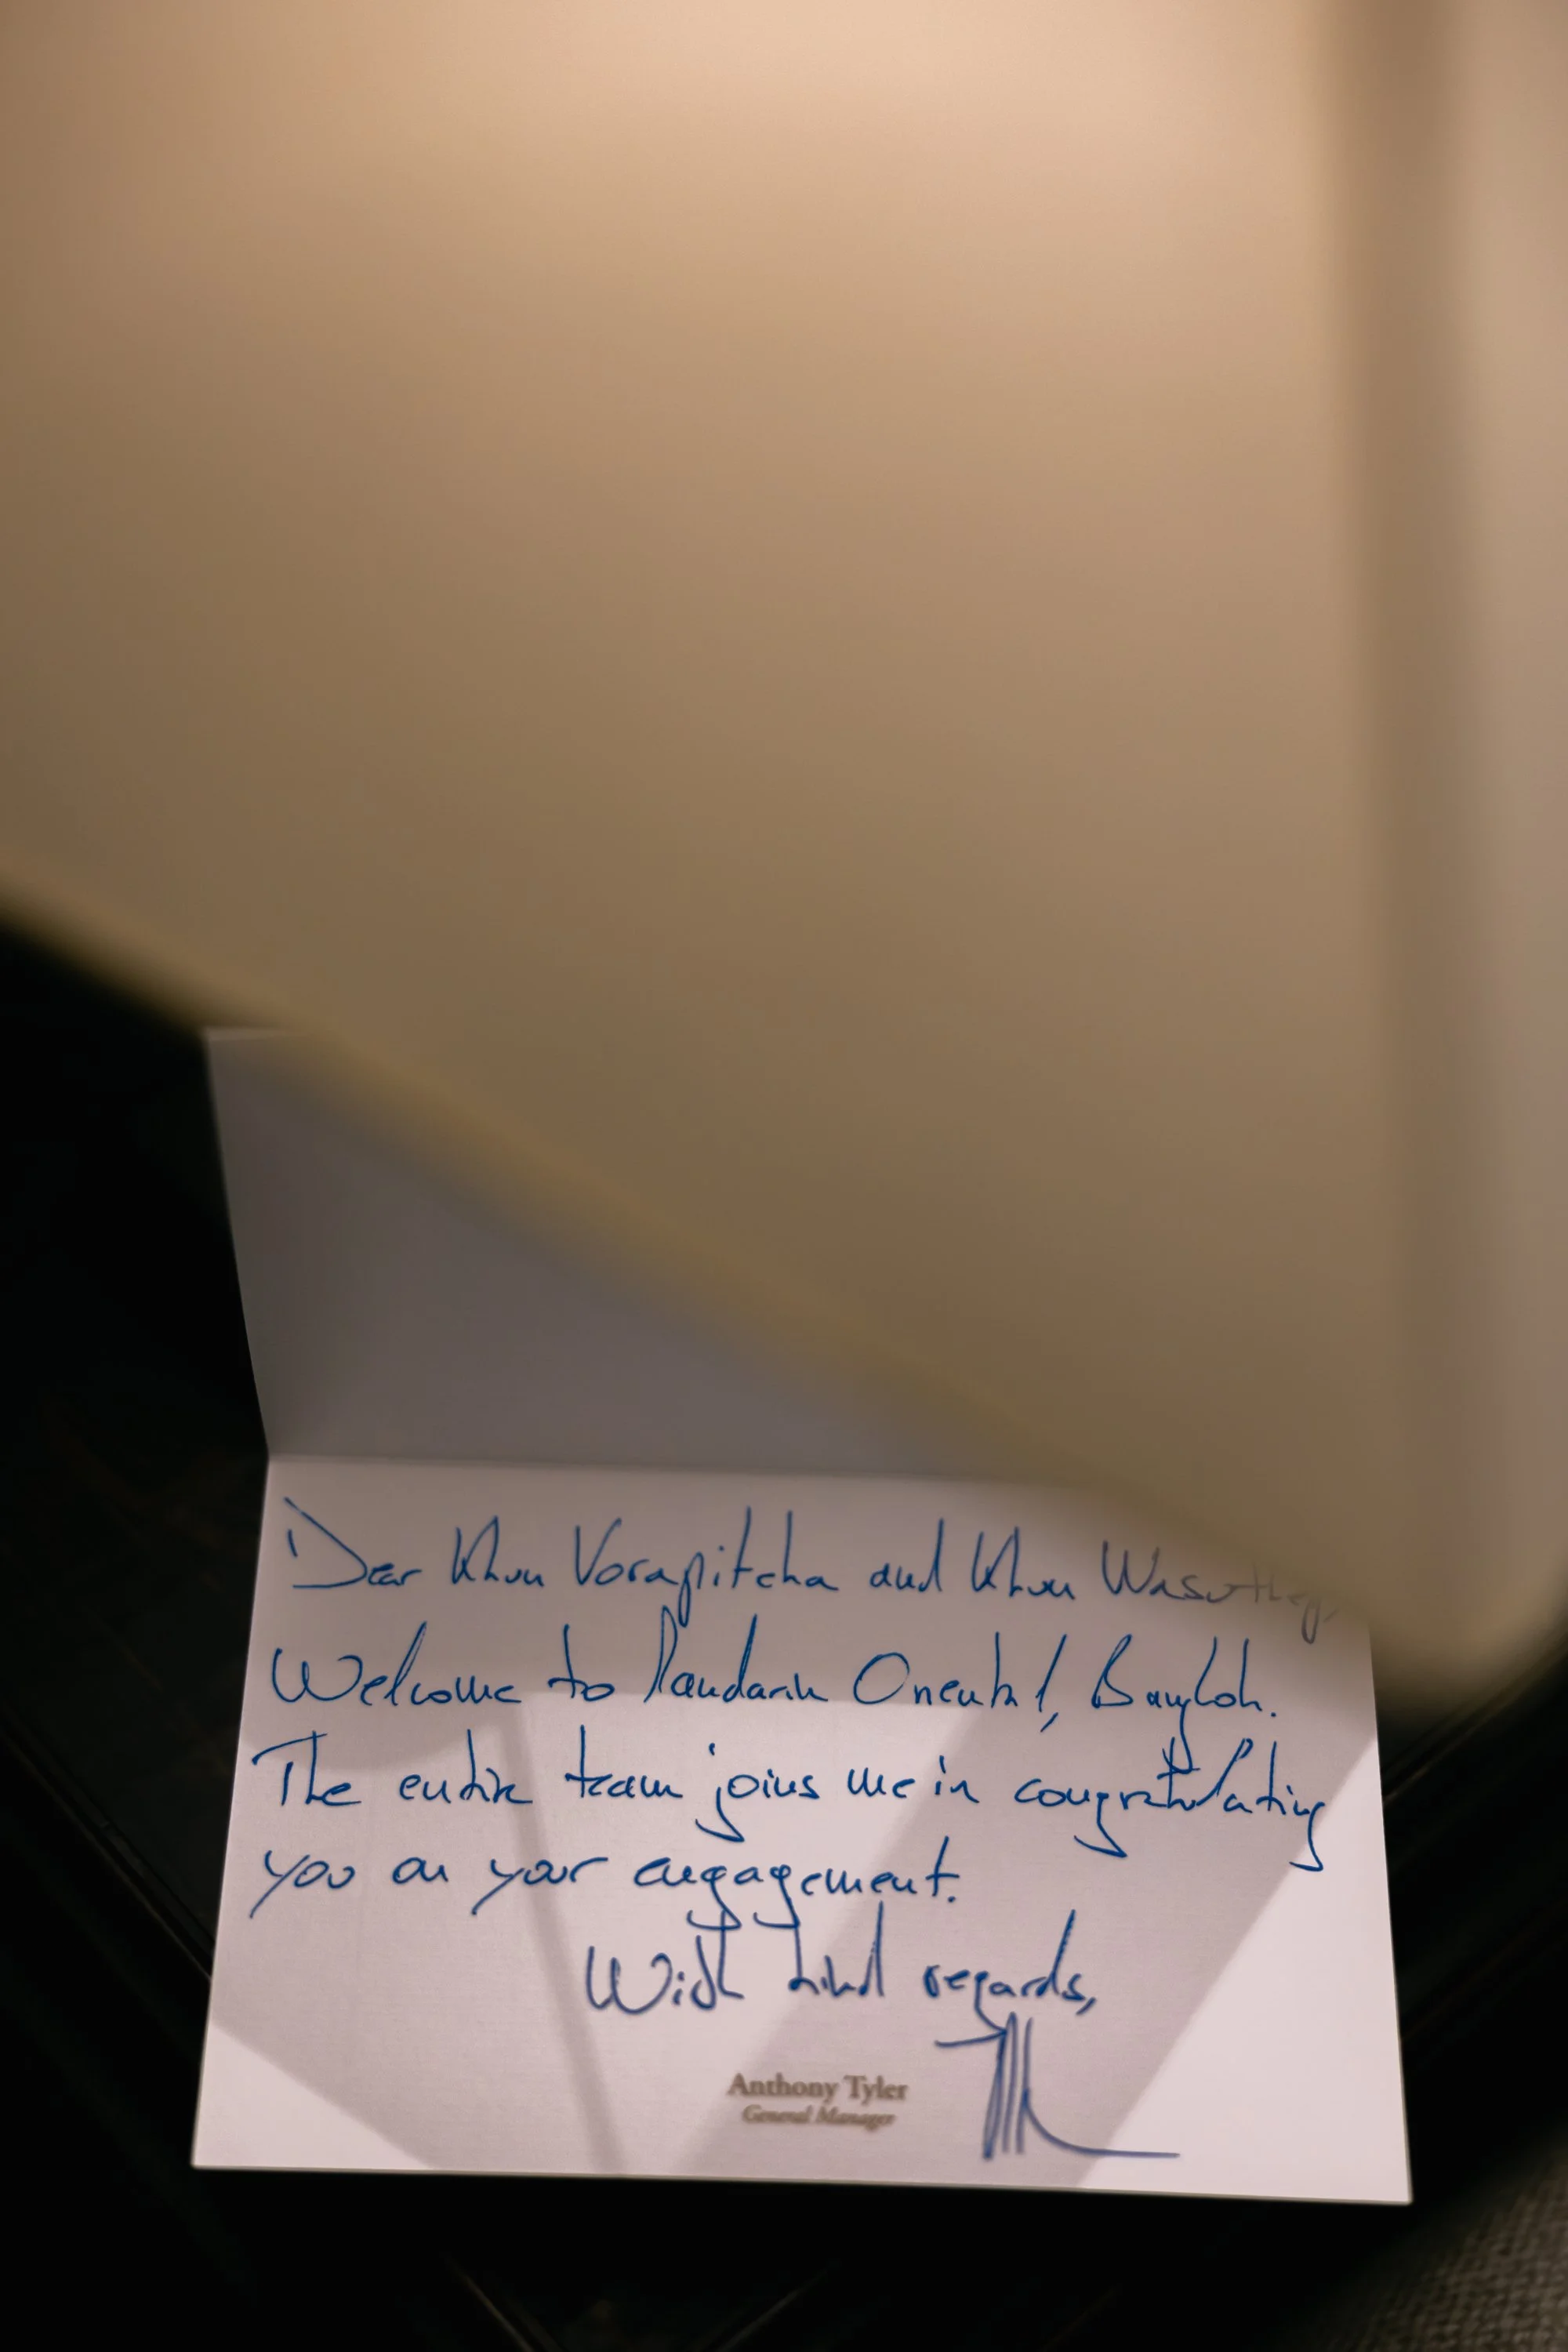 Dear Khun Vorapitcha and Khun
Welcome to Mandarin Oriental, Bangkok.
The entire team joins me in congratulating
you on your engagement.
With kind regards,
Anthony Tyler
General Manager